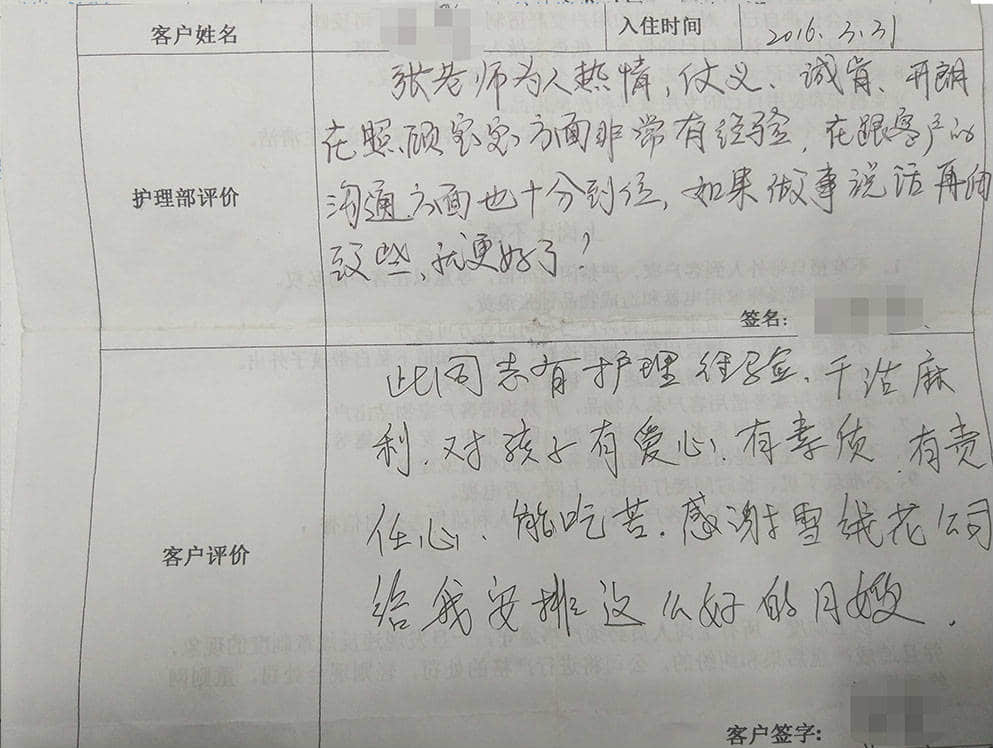 客户姓名 入住时间 2016.3.31
护理部评价
张老师为人热情，仗义、诚肯、开朗
在照顾宝宝方面非常有经验，在跟客户的
沟通方面也十分到位，如果做事说话再细
致些，就更好了，
签名：
客户评价
此同志有护理经验、干活麻
利、对孩子有爱心、有素质、有责
任心、能吃苦、感谢雪绒花公司
给我安排这么好的月嫂.
客户签字：